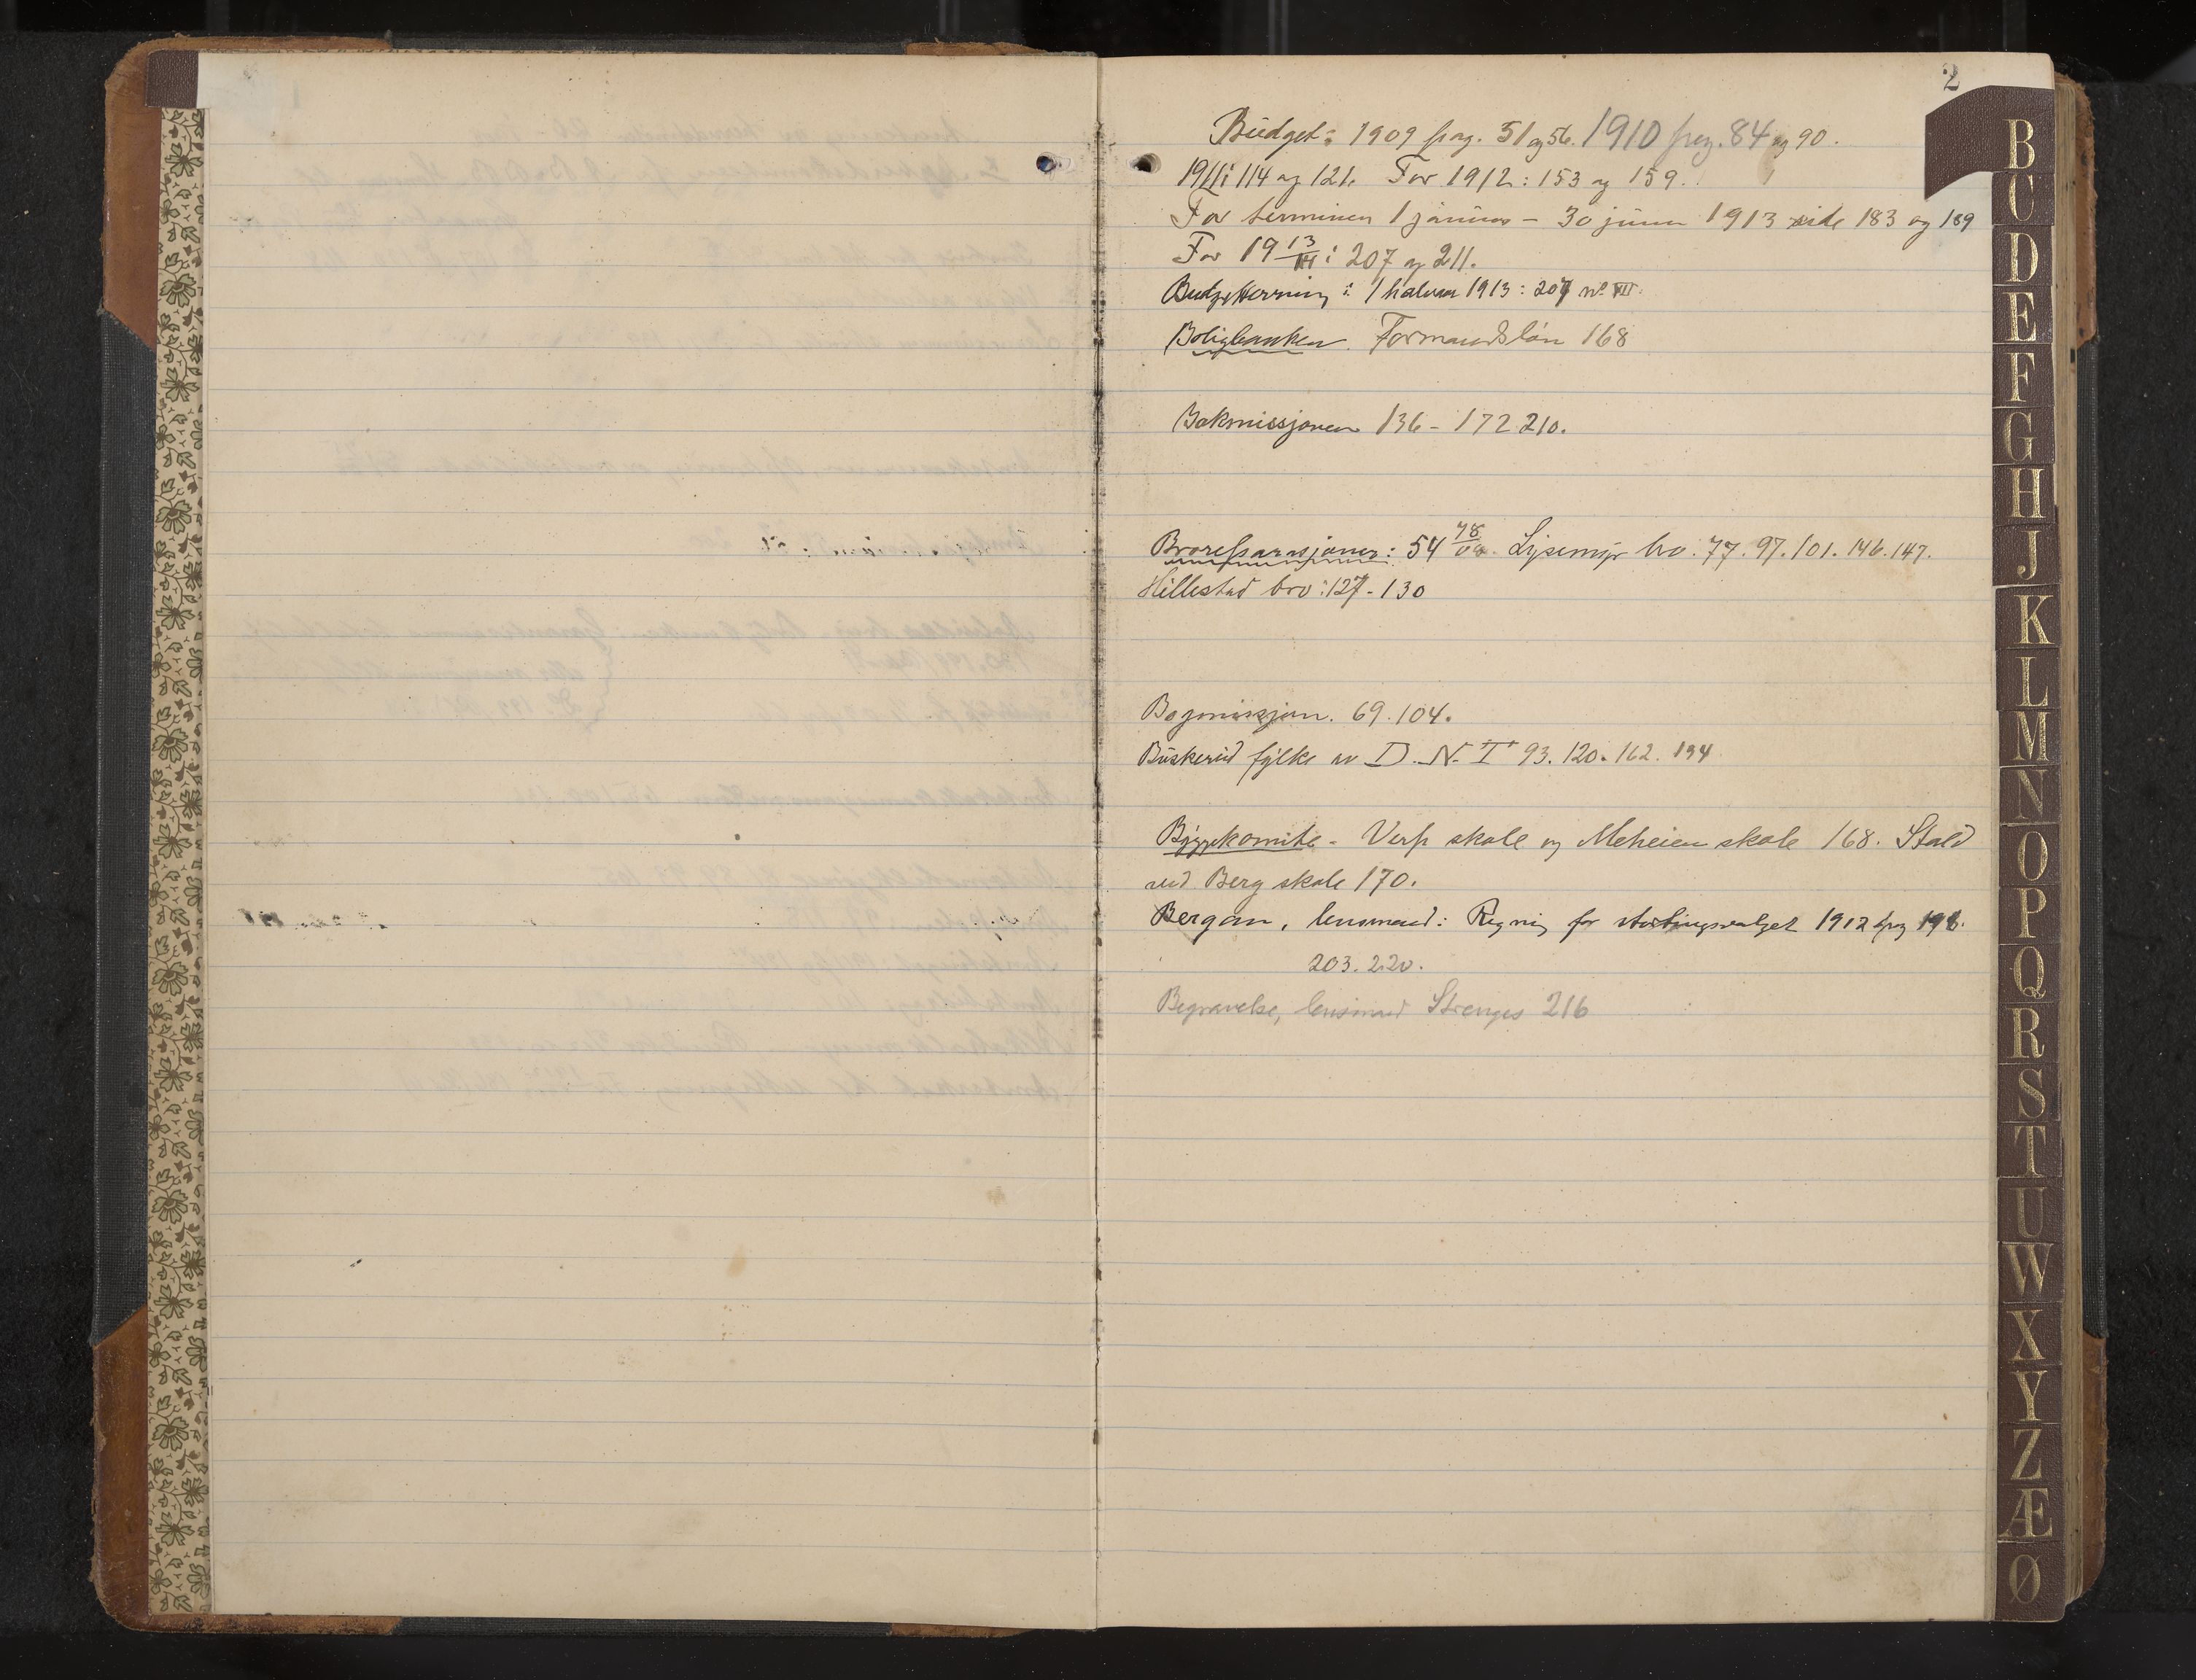 2
Budget: 1909 pag. 51 og 56. 1910 pag. 84 og 90.
1911: 114 og 121. For 1912: 153 og 159.
For terminen 1 januar - 30 juni 1913 side 183 og 189
For 19 13/14: 207 og 211.
Budgettering i 1 halvaar 1913: 207 no VII.
Boligbanken. Formandslån 168
Bakmissjonen 136 - 172 210.
Broreparasjoner: 54 78/08. Lysemyr bro. 77. 97. 101. 146. 147.
Hillestad bro: 127 - 130
Bagmissjon. 69. 104.
Buskerud fylke av D. N. T 93. 120. 162. 194
Byggekomite - Verp skole og Meheien skole 168. Stald
ved Berg skole 170.
Bergan, lensmand: Regning for stortingsvalget 1912 pag 198.
203. 220.
Begravelse, lensmand Strenges 216
B
C
D
E
F
G
H
J
K
L
M
N
O
P
Q
R
S
T
U
W
X
Y
Z
Æ
Ø